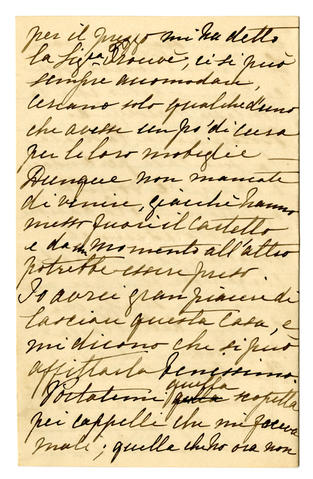 per il prezzo mi ha detto
la Sigra Prouvè, ci si può
sempre accomodare,
cercano solo qualched'uno
che avesse un po' di cura
per le loro mobiglie —
Dunque non mancate
di venire, giacchè hanno
messo fuori il cartello
e da un momento all'altro
potrebbe essere preso
Io avrei gran piacere di
lasciare questa casa, e
mi dicono che si può
affittarla benissimo
Portatemi quella scopetta
pei cappelli che mi faceva
male; quella che ho ora non